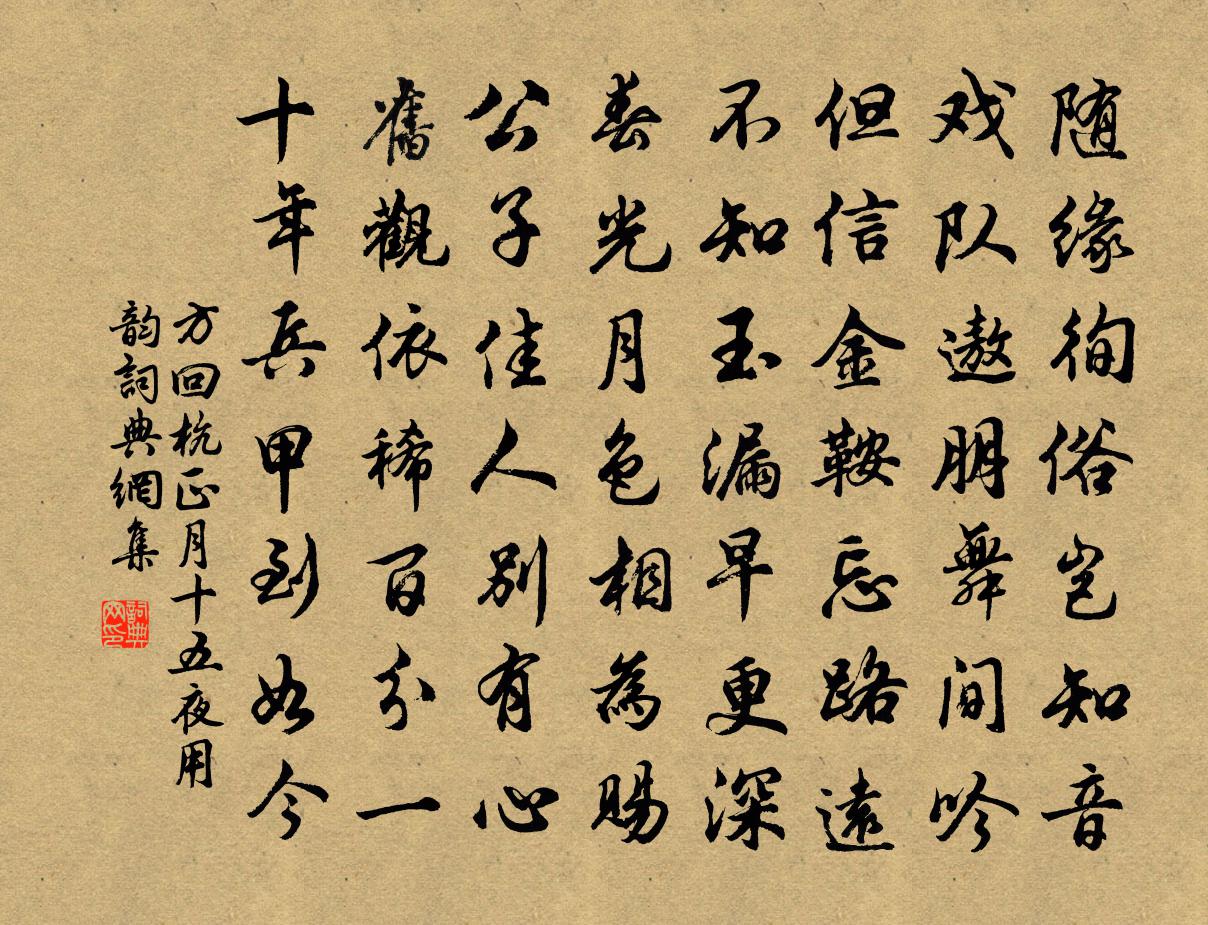 随缘徇俗岂知音
戏队遨朋舞间吟
但信金鞍忘路遠
不知玉漏早更深
春光月色相為賜
公子佳人别有心
舊觀依稀百分一
十年兵甲到如今
方回杭正月十五夜用
韵詞典網集
詞典
网印